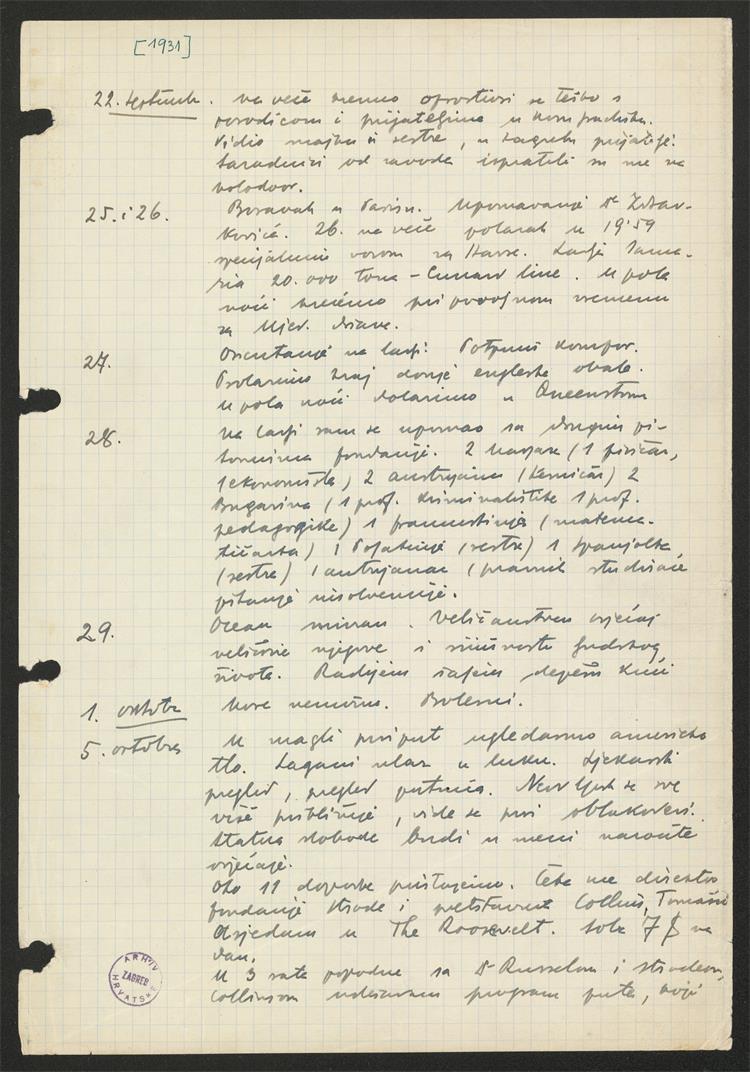 [1931]
22. septemb. na veče oprostivši se teško s
porodicom i prijateljima u
Vidio majku i sestre, u Zagrebu prijatelje.
Saradnici od zavoda ispratili su me na
kolodvor.
25. i 26. Boravak u Parisu. Upoznavanje Dr
26. na veče polazak u 19·59
specijalnim vozom za Havre. Ladja Sama-
ria 20.000 tona - Cunard line. U pola
noći krećemo pri povoljnom vremenu
za Ujed. države.
27. Orientacija na ladji. Potpuni komfor.
Prolazimo kraj donje engleske obale.
U pola noći dolazimo u Queenstown
28. Na ladji sam se upoznao sa drugim pi-
tomcima fondacije. 2 (1 fizičar,
1 ekonomista), 2 austrijanca (kemičar) 2
Bugarina (1 prof. kriminalistike 1 prof.
pedagogike) 1 francuskinja (matema-
tičarka) 1 Poljakinja (sestra) 1 španjolka
(sestra) 1 austrijanac (pravnik studirao
pitanje insolvencije.
29. Ocean miran. Veličanstven osjećaj
veličine njegove i sićušnosti ljudskog
života. Radijem šaljem depešu kući
1. oktobr More nemirno. Bolesni.
5. oktobra U magli prvi put ugledasmo americko
tlo. Lagani ulaz u luku. Ljekarski
pregled, pregled putnica. Newyork se sve
više približuje, vide se prvi oblakoderi.
Statua slobode budi u meni naročite
osjećaje.
Oko 11 do podne pristajemo. Čeka me direktor
fondacije Strode i pretstavnik Collins, Tomašić
Odsjedam u The Roosevelt. Soba 7 $ na
dan.
U 3 sata popodne sa Dr Russelom i Strodeom,
Collinsom udešavam program puta, koji
ARHIV
ZAGREB
HRVATSKE